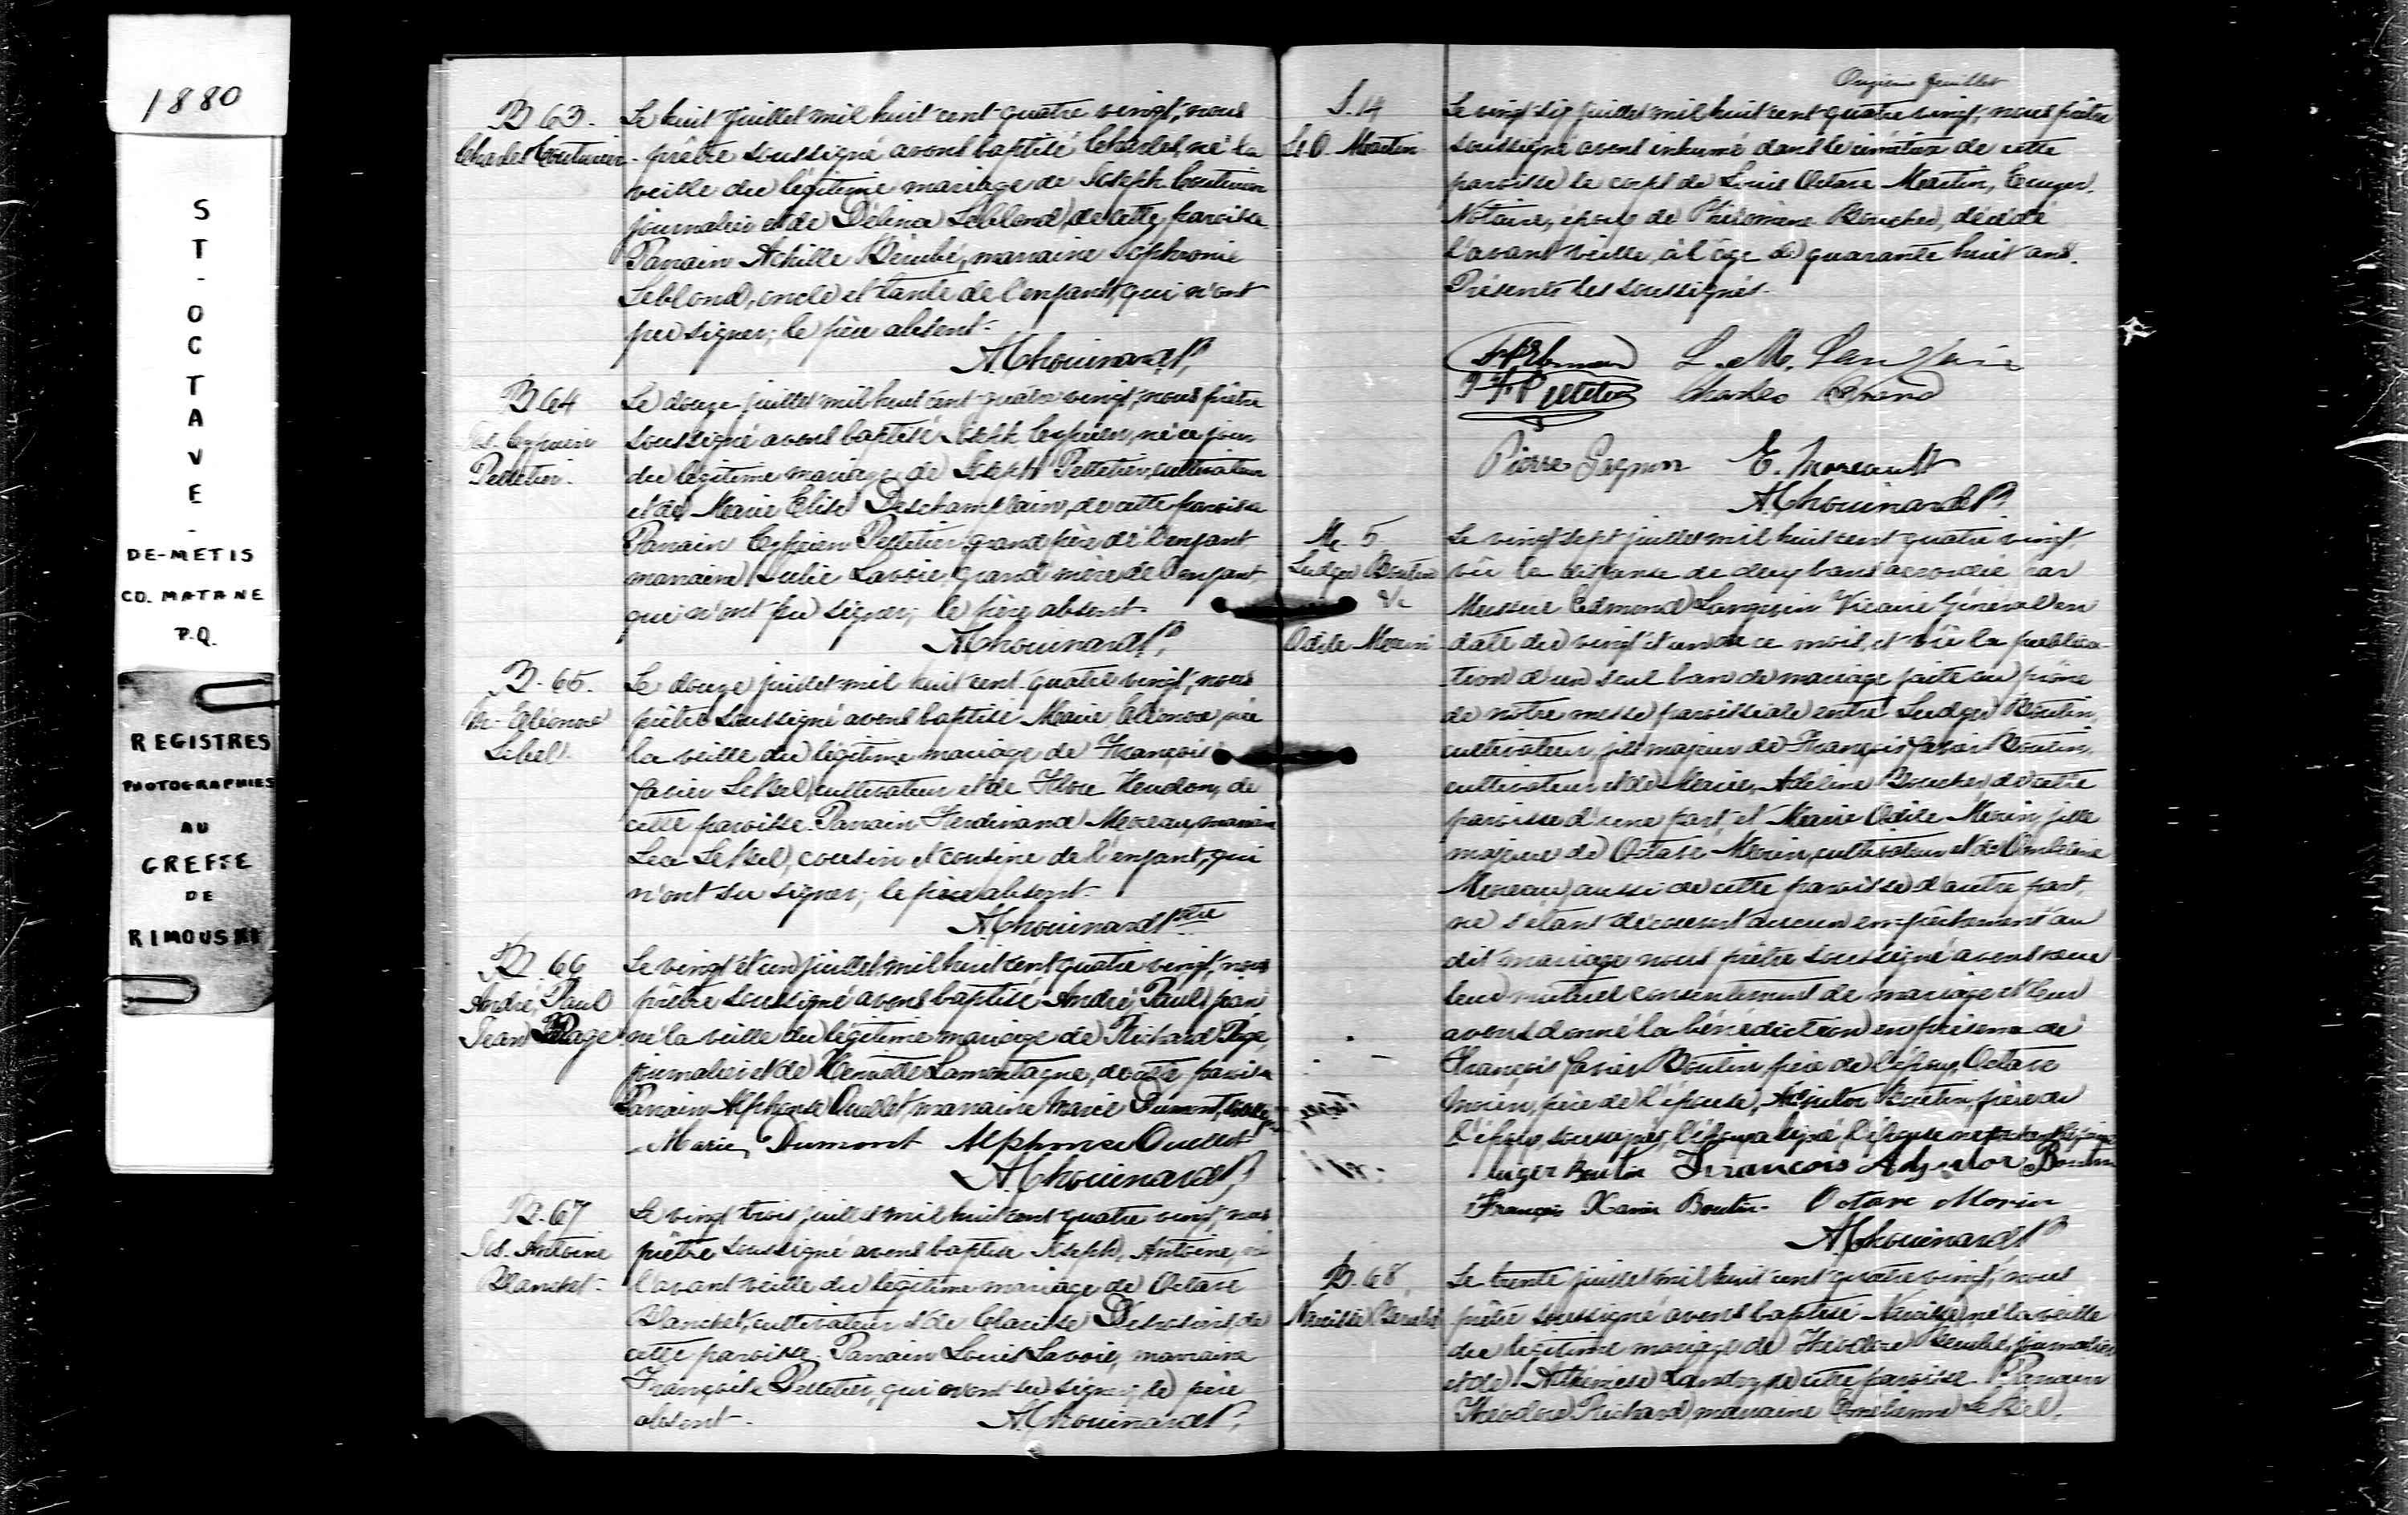 1880
ST-OCTAVE-
DE-METIS
CO. MATANE
P.Q.
REGISTRES
PHOTOGRAPHIES
AU
GREFFE
DE
RIMOUSKI
B 63.
Charles Couturier
Le huit juillet mil huit cent quatre vingt, nous
prêtre soussigné avons baptisé Charles, né la
veille du légitime mariage de Joseph Couturier
journalier et de Délina Leblond, de cette paroisse.
Parrain Achille Bérubé, marraine Sophronie
Leblond, oncle et tante de l'enfant, qui n'ont
pu signer; le père absent.
A. Chouinard P.
B 64
Jos. Cyprien
Pelletier.
Le douze juillet mil huit cent quatre vingt, nous prêtre
soussigné avons baptisé Joseph Cyprien, né ce jour
du légitime mariage de Joseph Pelletier, cultivateur
et de Marie Elise Deschamplain, de cette paroisse
Parrain Cyprien Pelletier grand père de l'enfant
marraine Julie Lavoie, grand mère de l'enfant
qui n'ont pu signer; le père absent.
A. Chouinard P.
B. 65.
M. Eléonore
Lebel.
Le douze juillet mil huit cent quatre vingt, nous
prêtre soussigné avons baptisé Marie Eléonore, née
la veille du légitime mariage de François
Xavier LeBel, cultivateur et de Flore Heudon, de
cette paroisse. Parrain Ferdinand Moreau, marraine
Léa LeBel, cousin et cousine de l'enfant, qui
n'ont su signer; le père absent.
A. Chouinard Ptre
B. 66
André, Paul
Jean Page
Le vingt et un juillet mil huit cent quatre vingt, nous
prêtre soussigné avons baptisé André Paul Jean
né la veille du légitime mariage de Richard Page,
journalier et de Henriette Lamontagne, de cette paroisse
Parrain Alphonse Ouellet, marraine Marie Dumont,
Marie Dumont Alphonse Ouellet
A. Chouinard P.
B. 67
Jos. Antoine
Blanchet.
Le vingt trois juillet mil huit cent quatre vingt, nous
prêtre soussigné avons baptisé Joseph, Antoine, né
l'avant veille du légitime mariage de Octave
Blanchet, cultivateur et de Clarisse Desrosiers, de
cette paroisse. Parrain Louis Lavoie, marraine
Françoise Pelletier, qui n'ont su signer, le père
absent.
A. Chouinard P.
Onzième feuillet
S. 14
L. O. Martin
Le vingt six juillet mil huit cent quatre vingt, nous prêtre
soussigné avons inhumé dans le cimetière de cette
paroisse le corps de Louis Octave Martin, Ecuyer.
Notaire, époux de Philomène Boucher, décédé
l'avant veille, à l'âge de quarante huit ans.
Présents les soussignés.
L. M. Langlais
Pelletier Charles
Pierre Gagnon E. Moreault
A. Chouinard P.
M. 5
Ludger Boutin
&
Odile Morin
Le vingt sept juillet mil huit cent quatre vingt,
vu la dispense de deux bans accordée par
Messire Edmond Langevin Vicaire Général en
date du vingt et un de ce mois, et vu la publica-
tion d'un seul ban de mariage faite au prône
de notre messe paroissiale entre Ludger Boutin,
cultivateur, fils majeur de François Xavier Boutin,
cultivateur et de Marie, Adeline Boucher de cette
paroisse d'une part, et Marie Odile Morin, fille
majeure de Octave Morin, cultivateur et de Ombéline
Moreau, aussi de cette paroisse d'autre part,
ne s'étant découvert aucun empêchement au
dit mariage nous prêtre soussigné avons reçu
leur mutuel consentement de mariage et leur
avons donné la bénédiction en présence de
François Xavier Boutin père de l'époux, Octave
Morin, père de l'épouse, Adjutor Boutin, frère de
l'époux, soussignés, l'époux a signé, l'épouse
Luger Boutin François Adjutor Boutin
François Xavier Boutin. Octave Morin
A. Chouinard P.
B. 68
Narcisse Bérubé
Le trente juillet mil huit cent quatre vingt, nous
prêtre soussigné avons baptisé Narcisse, né la veille
du légitime mariage de Théodore Bérubé, journalier
et de Landry, de cette paroisse. Parrain
Théodore Richard, marraine Emélienne LeBel.